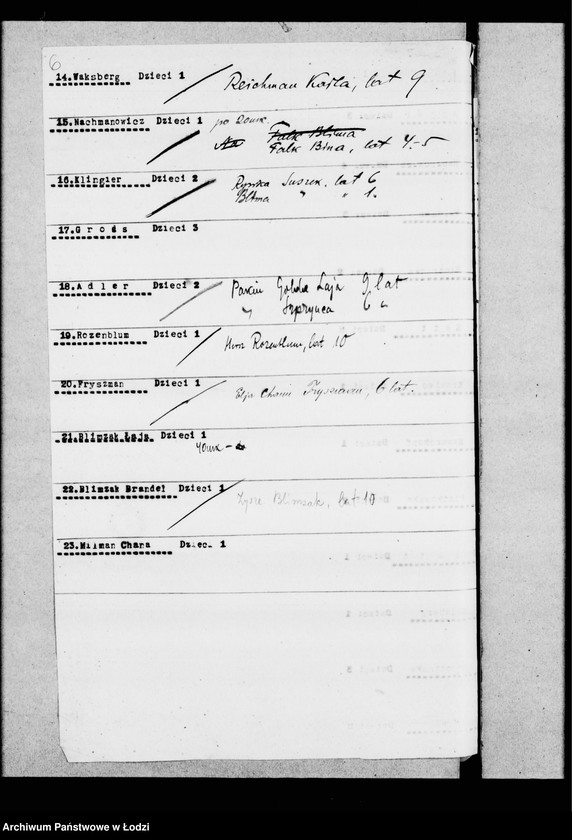 6
14.Waksberg Dzieci 1
Reichman Kajla, lat 9
15.Nachmanowicz Dzieci 1
po 20mk.
Falk Blima
Falk Bina, lat 4-5
16.Klingier Dzieci 2
Rywka lat 6
Blima " " 1.
17.G r o d s Dzieci 3
18.A d l e r Dzieci 2
Golda Laja 9 lat
" Szprynca 6 "
19.Rozenblum Dzieci 1
Rozenblum, lat 10
20.Fryszman Dzieci 1
Chaim Fryszman, 6 lat.
21.Blimzak Łaja Dzieci 1
40mk -
22.Blimzak Brandel Dzieci 1
Blimzak, lat 10
23.Milman Chana Dzieci 1
Archiwum Państwowe w Łodzi